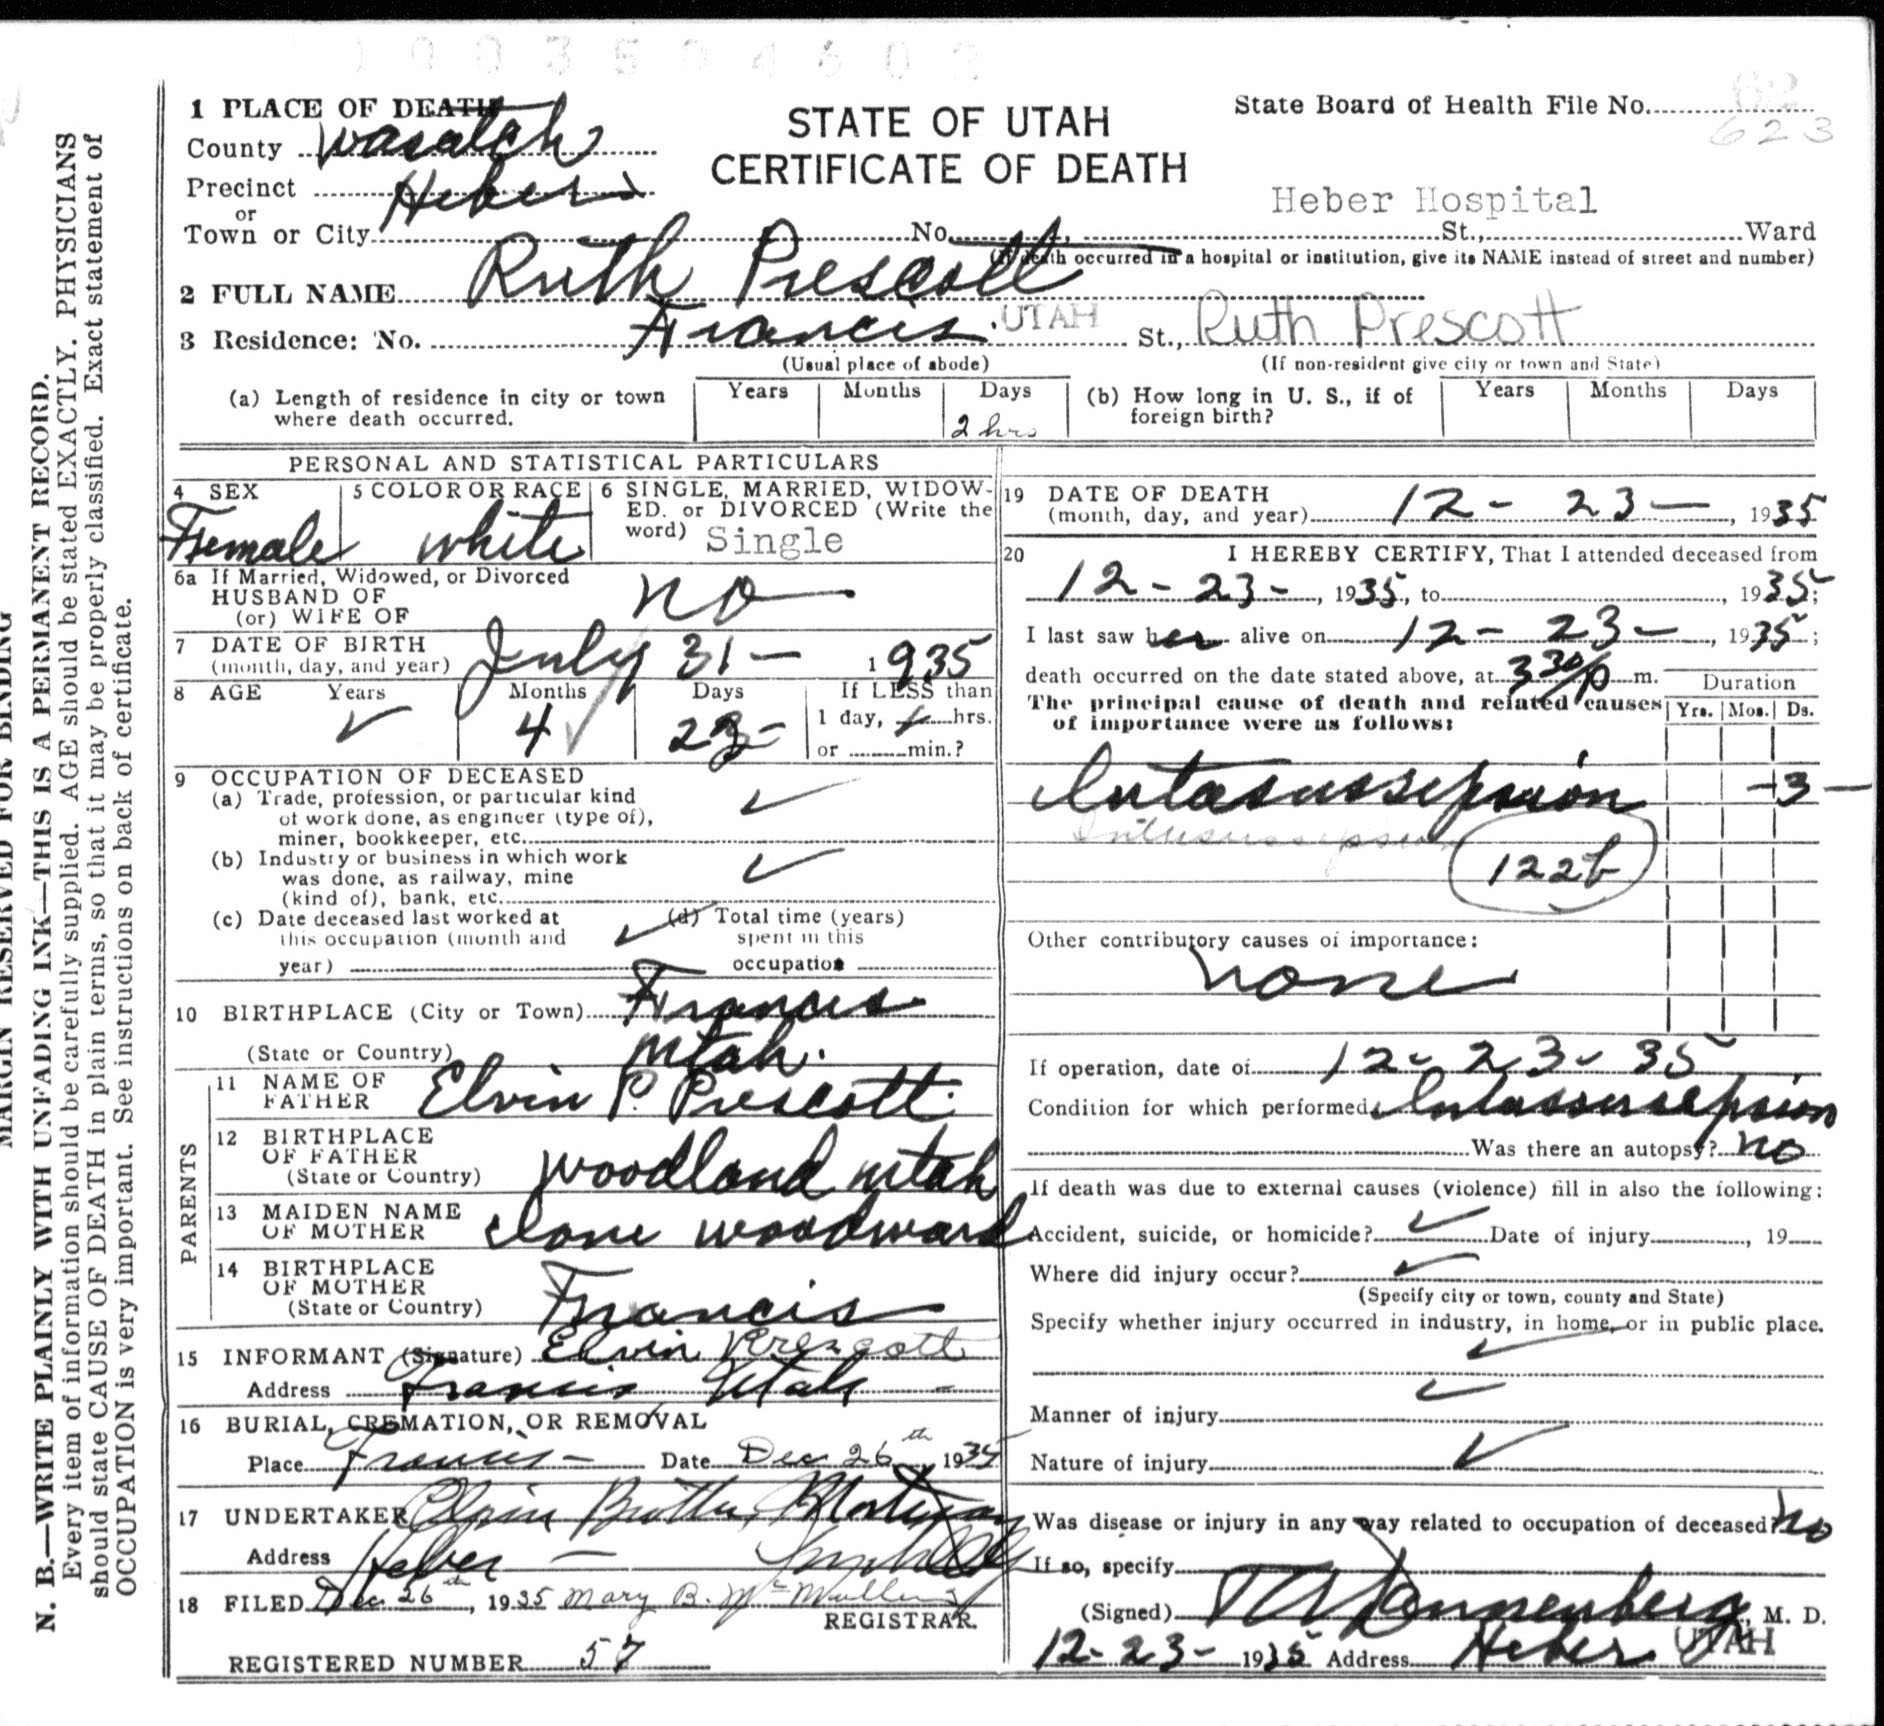 1 PLACE OF DEATH
County Wasatch
Precinct Heber
or
Town or City
STATE OF UTAH
CERTIFICATE OF DEATH
State Board of Health File No.
62
623
Heber Hospital
No. St., Ward
(If death occurred in a hospital or institution, give its NAME instead of street and number)
2 FULL NAME Ruth Prescott
3 Residence: No. Francis. UTAH St., Ruth Prescott
(Usual place of abode) (If non-resident give city or town and State)
(a) Length of residence in city or town where death occurred. Years Months Days 2 hrs
(b) How long in U. S., if of foreign birth? Years Months Days
PERSONAL AND STATISTICAL PARTICULARS
4 SEX Female
5 COLOR OR RACE white
6 SINGLE, MARRIED, WIDOW-
ED. or DIVORCED (Write the
word) Single
6a If Married, Widowed, or Divorced
HUSBAND OF
(or) WIFE OF no
7 DATE OF BIRTH
(month, day, and year) July 31 - 1935
8 AGE Years Months Days If LESS than
4 23 1 day, hrs.
or min.?
9 OCCUPATION OF DECEASED
(a) Trade, profession, or particular kind
of work done, as engineer (type of),
miner, bookkeeper, etc.
(b) Industry or business in which work
was done, as railway, mine
(kind of), bank, etc.
(c) Date deceased last worked at
this occupation (month and
year)
(d) Total time (years)
spent in this
occupation
10 BIRTHPLACE (City or Town) Francis
(State or Country) Utah.
PARENTS
11 NAME OF
FATHER Elvin P. Prescott
12 BIRTHPLACE
OF FATHER
(State or Country) Woodland Utah
13 MAIDEN NAME
OF MOTHER Ione Woodward
14 BIRTHPLACE
OF MOTHER
(State or Country) Francis
15 INFORMANT (Signature) Elvin Prescott
Address Francis Utah
16 BURIAL, CREMATION, OR REMOVAL
Place Francis - Date Dec 26th 1935
17 UNDERTAKER Mortuary
Address Heber -
18 FILED Dec 26th, 1935 Mary B. McMullin
REGISTRAR.
REGISTERED NUMBER 57
19 DATE OF DEATH
(month, day, and year) 12 - 23 -, 1935
20 I HEREBY CERTIFY, That I attended deceased from
12 - 23 -, 1935, to , 1935;
I last saw her alive on 12 - 23 -, 1935;
death occurred on the date stated above, at 330 p m.
The principal cause of death and related causes
of importance were as follows:
Duration
Yrs. Mos. Ds.
Intasussepsion - 3 -
Intussussepsion
122b
Other contributory causes of importance:
none
If operation, date of 12 - 23 - 35
Condition for which performed Intassussepsion
Was there an autopsy? no
If death was due to external causes (violence) fill in also the following:
Accident, suicide, or homicide? Date of injury , 19
Where did injury occur?
(Specify city or town, county and State)
Specify whether injury occurred in industry, in home, or in public place.
Manner of injury
Nature of injury
Was disease or injury in any way related to occupation of deceased? no
If so, specify
(Signed) Dannenberg, M. D.
12 - 23 - 1935 Address Heber UTAH
MARGIN RESERVED FOR BINDING
N. B.—WRITE PLAINLY WITH UNFADING INK—THIS IS A PERMANENT RECORD.
Every item of information should be carefully supplied. AGE should be stated EXACTLY. PHYSICIANS
should state CAUSE OF DEATH in plain terms, so that it may be properly classified. Exact statement of
OCCUPATION is very important. See instructions on back of certificate.